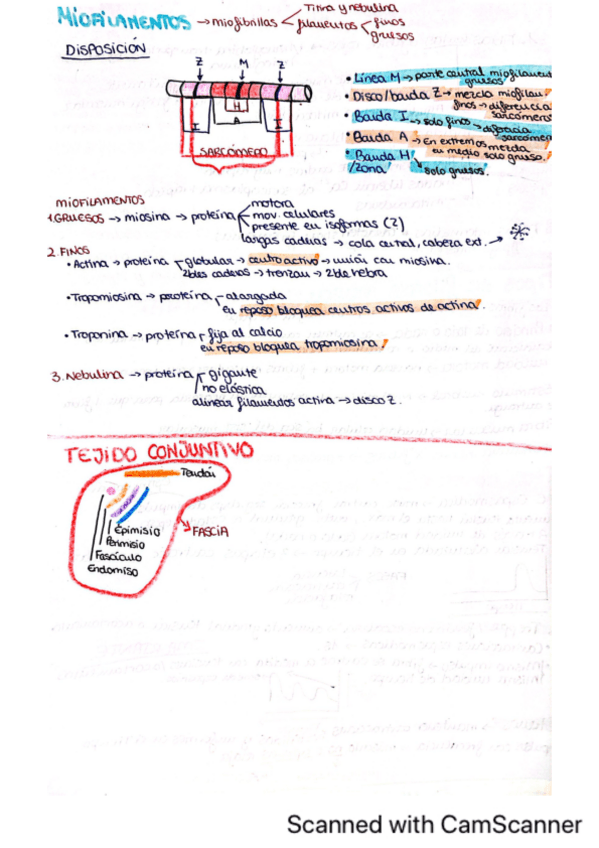 MIOFILAMENTOS → miofibrillas
Titina y nebulina
filamentos
finos
gruesos
DISPOSICIÓN
Z M Z
H
A
I I
SARCÓMERO
• Línea M → parte central miofilament
gruesos
• Disco/banda Z → mezcla miofilam
finos → diferencia
sarcómeros
• Banda I → solo finos → diferencia
sarcómer
• Banda A → En extremos mezcla
en medio solo grueso.
• Banda H
/zona
solo gruesos.
MIOFILAMENTOS
1. GRUESOS → miosina → proteína
motora
mov. celulares
presente en isoformas (2)
largas cadenas → cola central, cabeza ext. →
2. FINOS
• Actina → proteína globular → centro activo → unión con miosina.
2bles cadenas → trenzan → 2ble hebra
• Tropomiosina → proteína alargada
en reposo bloquea centros activos de actina.
• Troponina → proteína fija al calcio
en reposo bloquea tropomiosina.
3. Nebulina → proteína gigante
no elástica
alinear filamentos actina → disco Z.
TEJIDO CONJUNTIVO
Tendón
Epimisio
Perimisio
Fascículo
Endomiso
FASCIA
Scanned with CamScanner